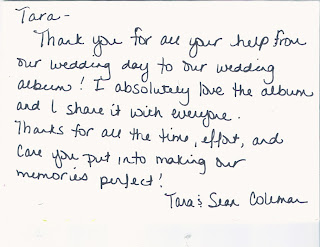 Tara -
Thank you for all your help from
our wedding day to our wedding
album! I absolutely love the album
and I share it with everyone.
Thanks for all the time, effort, and
care you put into making our
memories perfect!
Tara & Sean Coleman